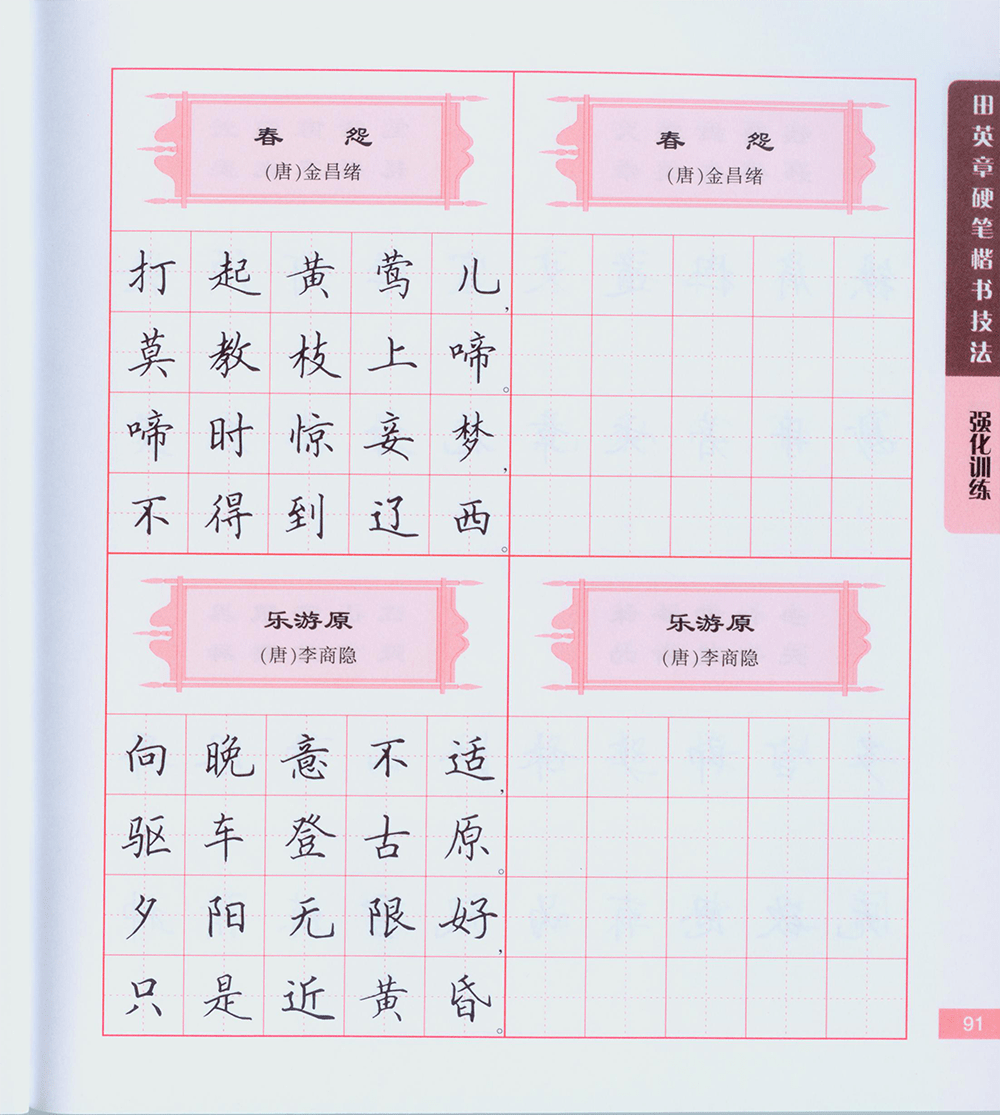 春 怨
(唐)金昌绪
春 怨
(唐)金昌绪
打起黄莺儿，
莫教枝上啼。
啼时惊妾梦，
不得到辽西。
乐游原
(唐)李商隐
乐游原
(唐)李商隐
向晚意不适，
驱车登古原。
夕阳无限好，
只是近黄昏。
田英章硬笔楷书技法
强化训练
91